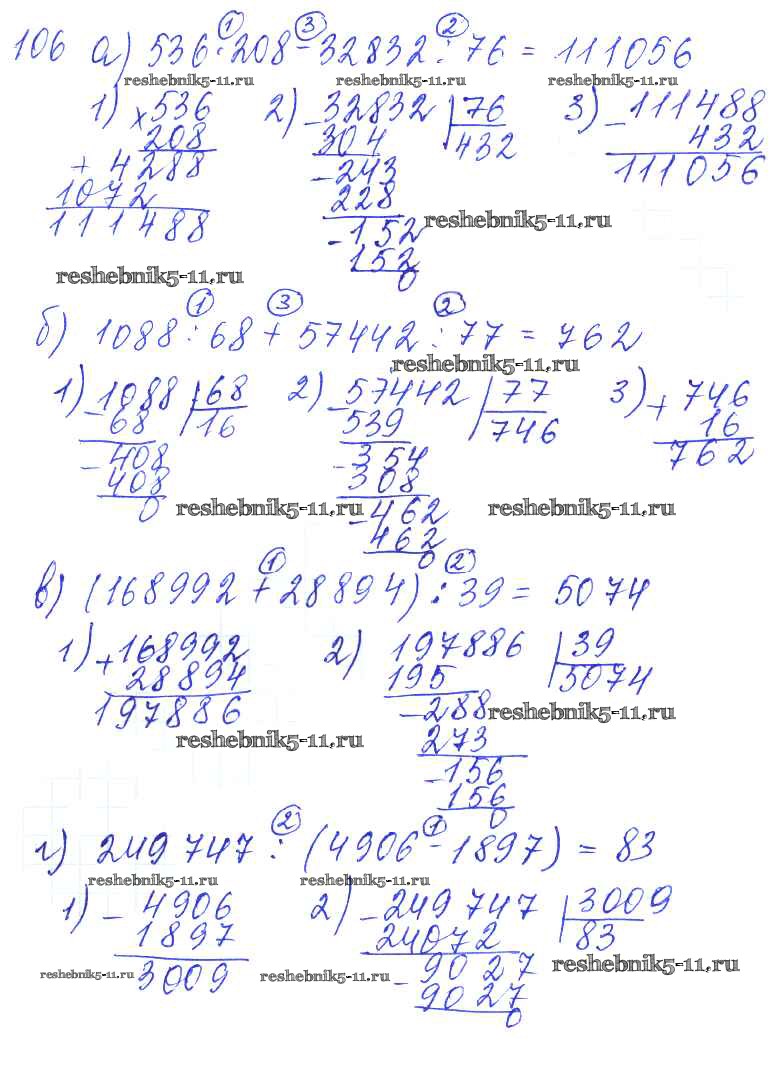 106 а) 536 · 208 - 32832 : 76 = 111056
① ③ ②
reshebnik5-11.ru reshebnik5-11.ru reshebnik5-11.ru
1) × 536 2) - 32832 | 76 3) - 111488
208 304 432 432
+ 4288 - 243 111056
1072 228
111488 - 152
reshebnik5-11.ru
152
reshebnik5-11.ru
0
① ③ ②
б) 1088 : 68 + 57442 : 77 = 762
reshebnik5-11.ru
1) - 1088 | 68 2) - 57442 | 77 3) + 746
68 16 539 746 16
- 408 - 354 762
408 308
0 - 462
reshebnik5-11.ru reshebnik5-11.ru
462
0
① ②
в) (168992 + 28894) : 39 = 5074
1) + 168992 2) 197886 | 39
28894 195 5074
197886 - 288
reshebnik5-11.ru
reshebnik5-11.ru
273
- 156
156
0
② ①
г) 249747 : (4906 - 1897) = 83
reshebnik5-11.ru reshebnik5-11.ru
1) - 4906 2) - 249747 | 3009
1897 24072 83
3009 - 9027
reshebnik5-11.ru reshebnik5-11.ru reshebnik5-11.ru
9027
0